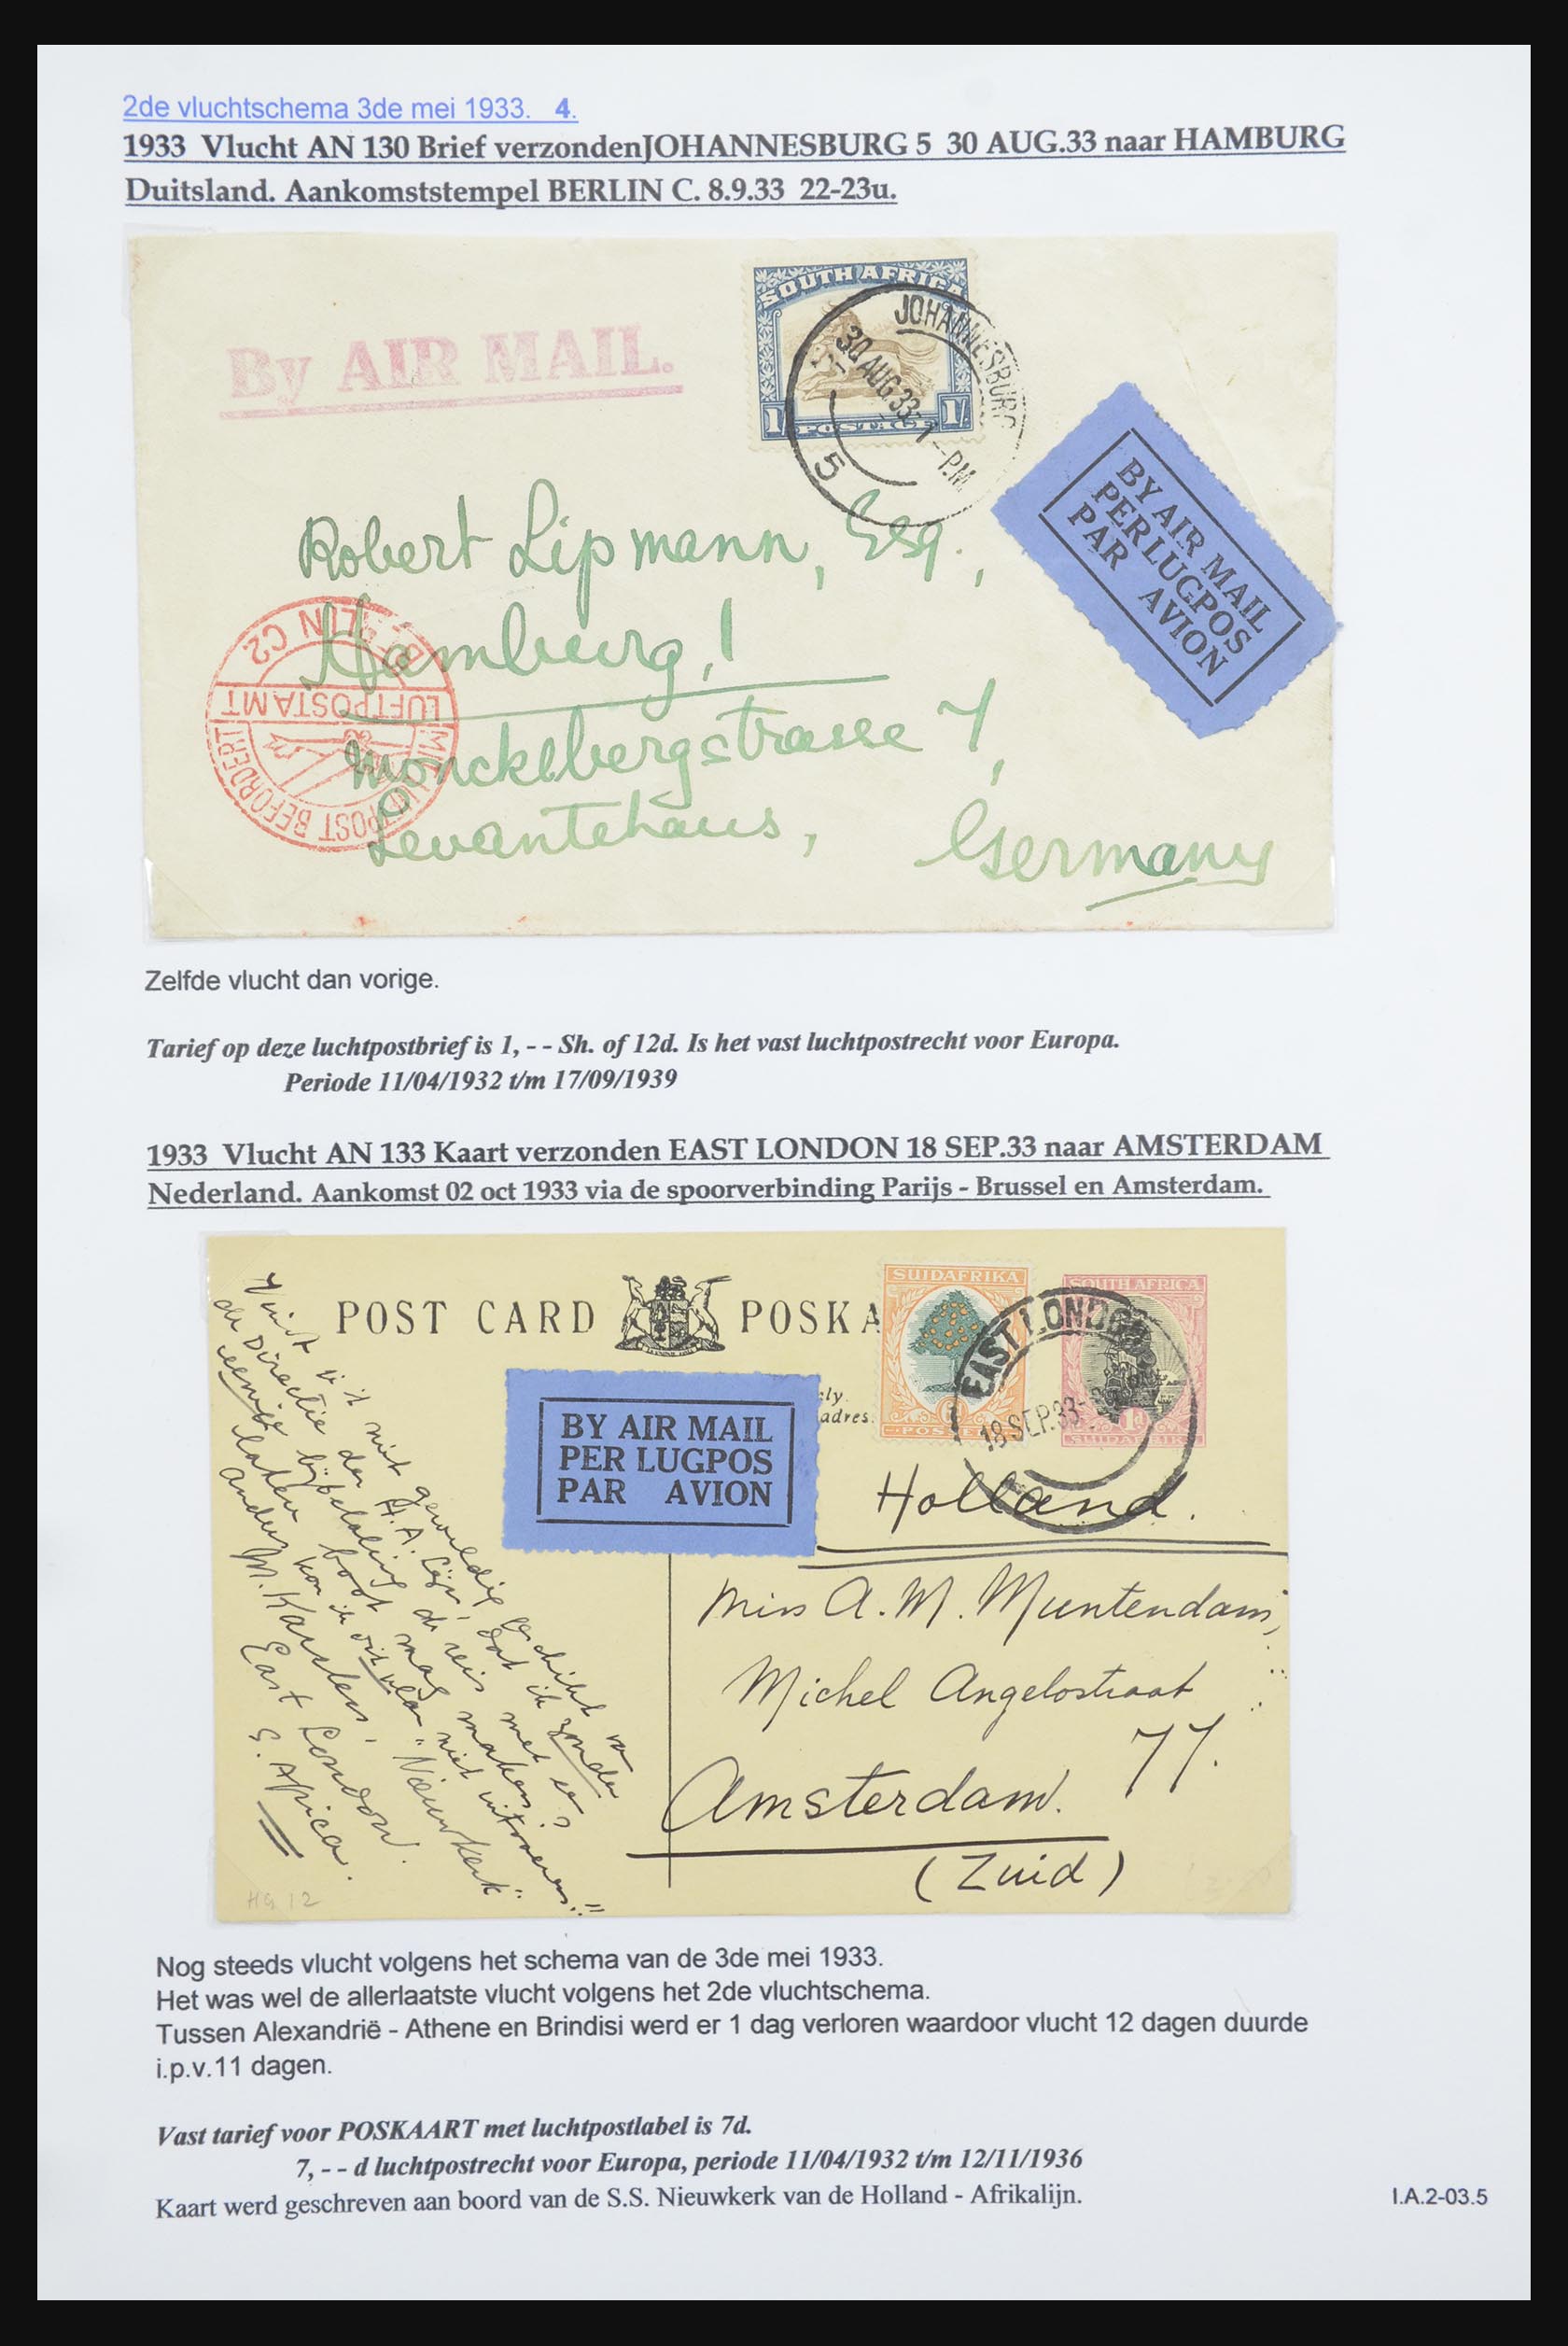 2de vluchtschema 3de mei 1933. 4.
1933 Vlucht AN 130 Brief verzondenJOHANNESBURG 5 30 AUG.33 naar HAMBURG
Duitsland. Aankomststempel BERLIN C. 8.9.33 22-23u.
SOUTH AFRICA
1/- POSTAGE 1/-
JOHANNESBURG
30 AUG.33-1-P.M.
5
By AIR MAIL.
BY AIR MAIL
PER LUGPOS
PAR AVION
Robert Lipmann, Esq.,
Hamburg, 1
Mönckebergstrasse 7,
Levantehaus, Germany
BERLIN C2
LUFTPOSTAMT
MIT LUFTPOST BEFÖRDERT
Zelfde vlucht dan vorige.
Tarief op deze luchtpostbrief is 1, - - Sh. of 12d. Is het vast luchtpostrecht voor Europa.
Periode 11/04/1932 t/m 17/09/1939
1933 Vlucht AN 133 Kaart verzonden EAST LONDON 18 SEP.33 naar AMSTERDAM
Nederland. Aankomst 02 oct 1933 via de spoorverbinding Parijs - Brussel en Amsterdam.
POST CARD POSKA
SUIDAFRIKA
SOUTH AFRICA
1d
SUIDAFRIKA
EAST LONDON
18 SEP.33
ly.
adres.
BY AIR MAIL
PER LUGPOS
PAR AVION
Vindt U 't niet geweldig geschikt van
de Directie der H.A. Lijn, dat ik zonder
eenige bijbetaling de reis met een
latere boot mag maken?
Anders kon ik dit plan niet uitvoeren!
M. Karsten, "Nieuwkerk"
East London.
S. Africa.
Holland.
Miss A. M. Muntendam,
Michel Angelostraat
77.
Amsterdam.
(Zuid)
HG 12
Nog steeds vlucht volgens het schema van de 3de mei 1933.
Het was wel de allerlaatste vlucht volgens het 2de vluchtschema.
Tussen Alexandrië - Athene en Brindisi werd er 1 dag verloren waardoor vlucht 12 dagen duurde
i.p.v.11 dagen.
Vast tarief voor POSKAART met luchtpostlabel is 7d.
7, - - d luchtpostrecht voor Europa, periode 11/04/1932 t/m 12/11/1936
Kaart werd geschreven aan boord van de S.S. Nieuwkerk van de Holland - Afrikalijn.
I.A.2-03.5